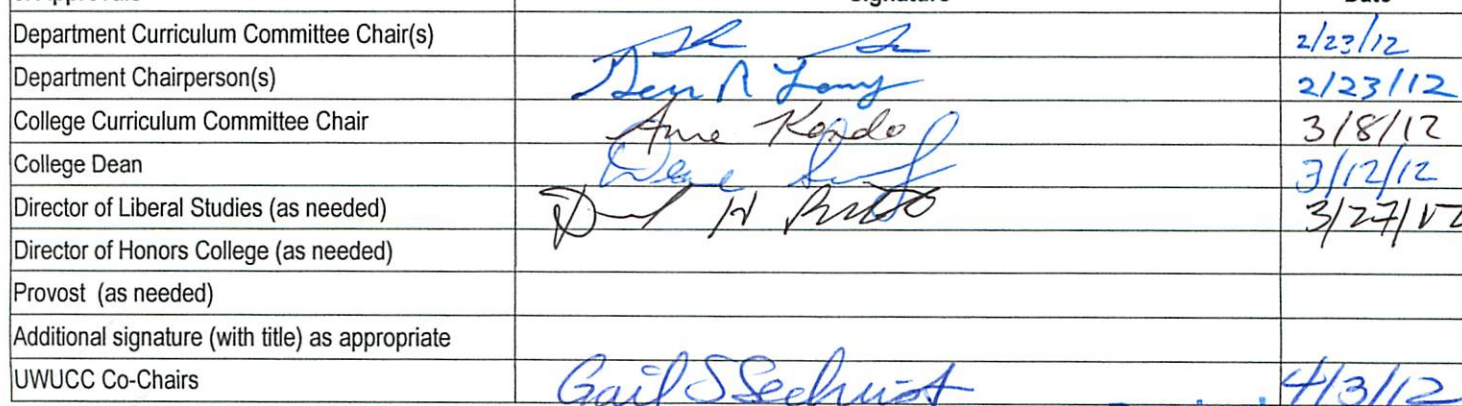 Approvals Signature Date
Department Curriculum Committee Chair(s) 2/23/12
Department Chairperson(s) 2/23/12
College Curriculum Committee Chair Anne Kondo 3/8/12
College Dean 3/12/12
Director of Liberal Studies (as needed) 3/27/12
Director of Honors College (as needed)
Provost (as needed)
Additional signature (with title) as appropriate
UWUCC Co-Chairs Gail S Sechrist 4/3/12